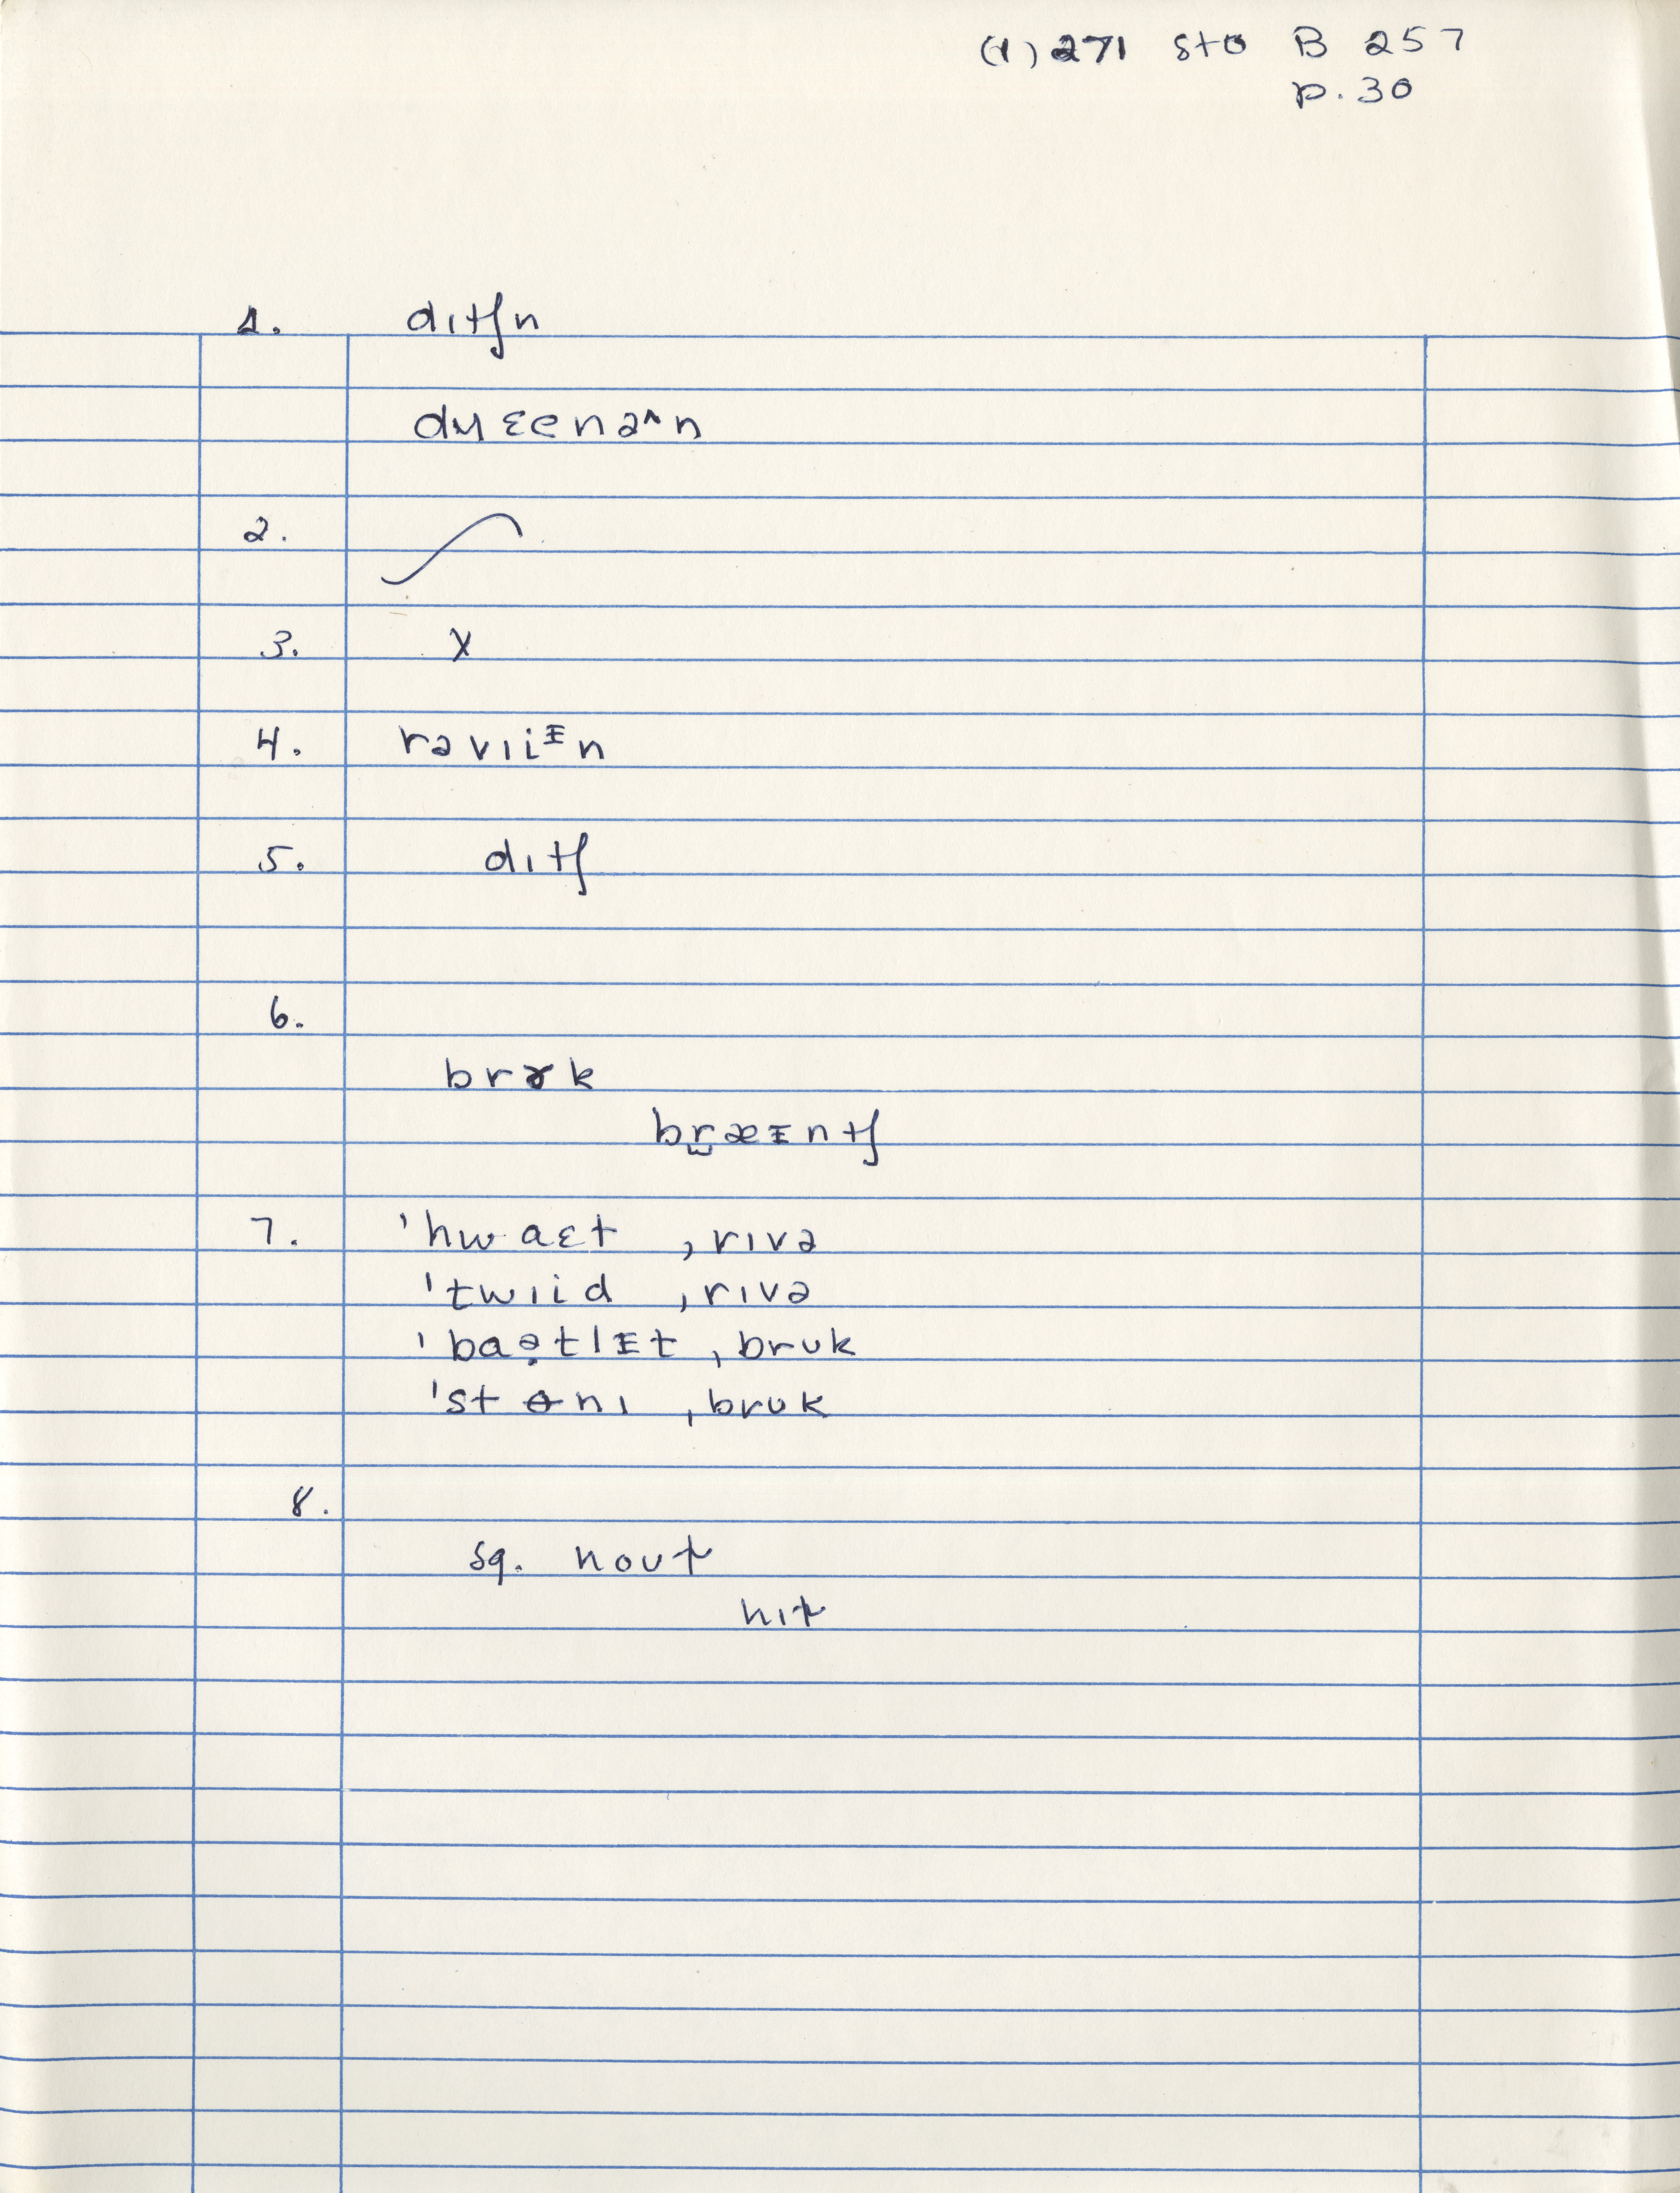 (1) 271 Sto B 257
p. 30
1. dɪtʃn
dʜɛenəʌn
2.
3. X
4. rəvɪiᵻn
5. dɪtʃ
6.
brɤk
br̫æᵻntʃ
7. ˈhwaɛt ˌrɪvə
ˈtwɪid ˌrɪvə
ˈbaə̣tlᵻt ˌbrʊk
ˈstɵnɪ ˌbrʊk
8.
sq. noʊt
hɪt